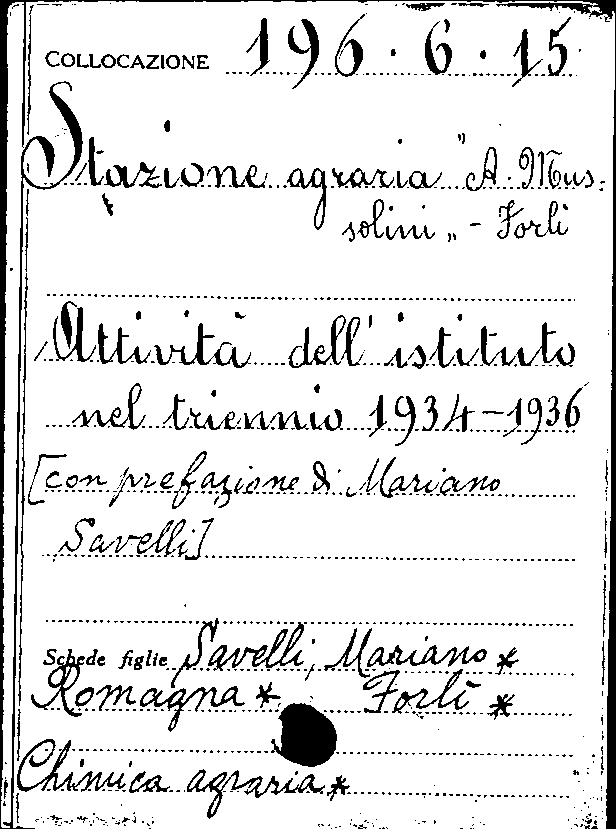 COLLOCAZIONE 196.6.15
Stazione agraria "A. Mus-
solini„ - Forlì
Attività dell'istituto
nel triennio 1934-1936
[con prefazione di Mariano
Savelli]
Schede figlie Savelli, Mariano *
Romagna * Forlì *
Chimica agraria *